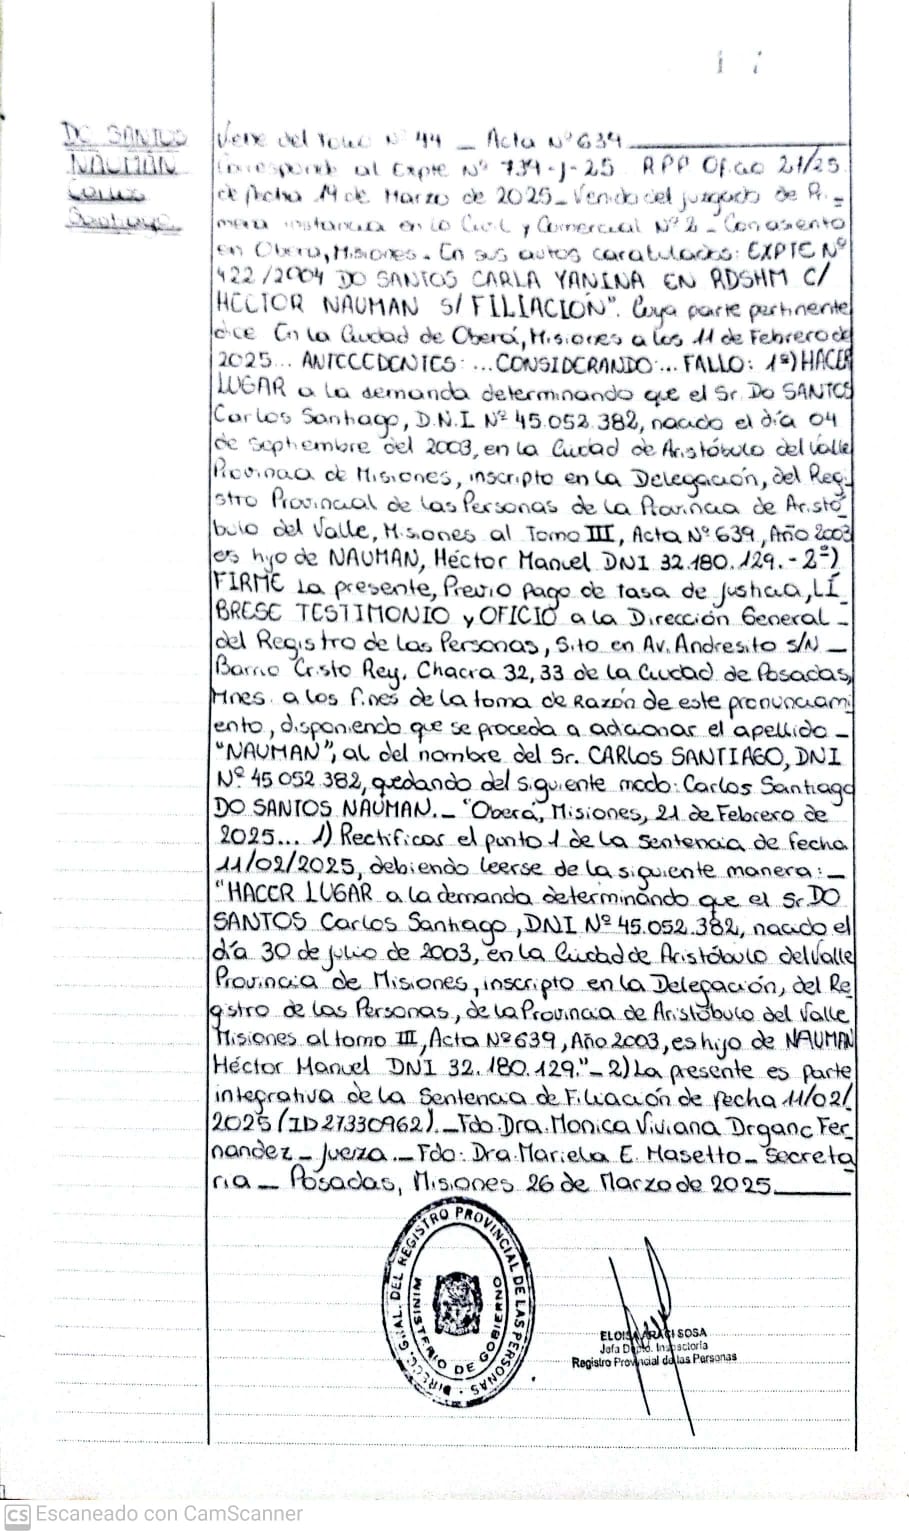 DO SANTOS
NAUMAN
Carlos
Santiago
Viene del Tomo Nº 44 _ Acta Nº 639
Corresponde al Expte Nº 734-J-25 RPP Oficio 21/25
de fecha 14 de Marzo de 2025_ Venido del juzgado de Pri_
mera instancia en lo Civil y Comercial Nº 2 _ Con asiento
en Oberá, Misiones. En sus autos caratulados: EXPTE Nº
422/2004 DO SANTOS CARLA YANINA EN RDSHM C/
HECTOR NAUMAN S/ FILIACION". Cuya parte pertinente
dice En la Ciudad de Oberá, Misiones a los 11 de Febrero de
2025... ANTECEDENTES: ...CONSIDERANDO... FALLO: 1º) HACER
LUGAR a la demanda determinando que el Sr. Do SANTOS
Carlos Santiago, D.N.I Nº 45.052.382, nacido el día 04
de Septiembre del 2003, en la Ciudad de Aristóbulo del Valle
Provincia de Misiones, inscripto en la Delegación, del Regi_
stro Provincial de las Personas de la Provincia de Aristó_
bulo del Valle, Misiones al Tomo III, Acta Nº 639, Año 2003
es hijo de NAUMAN, Héctor Manuel DNI 32.180.129.- 2º)
FIRME La presente, Previo Pago de tasa de Justicia, LÍ_
BRESE TESTIMONIO y OFICIO a la Dirección General _
del Registro de las Personas, Sito en Av. Andresito s/N _
Barrio Cristo Rey, Chacra 32, 33 de la Ciudad de Posadas,
Mnes. a los fines de la toma de Razón de este pronunciam_
iento, disponiendo que se proceda a adicionar el apellido _
"NAUMAN", al del nombre del Sr. CARLOS SANTIAGO, DNI
Nº 45 052 382, quedando del siguiente modo: Carlos Santiago
DO SANTOS NAUMAN._ "Oberá, Misiones, 21 de Febrero de
2025... 1) Rectificar el punto 1 de la Sentencia de fecha
11/02/2025, debiendo leerse de la siguiente manera:_
"HACER LUGAR a la demanda determinando que el Sr DO
SANTOS Carlos Santiago, DNI Nº 45.052.382, nacido el
día 30 de julio de 2003, en la Ciudad de Aristóbulo del Valle
Provincia de Misiones, inscripto en la Delegación, del Re
gistro de las Personas, de la Provincia de Aristóbulo del Valle
Misiones al tomo III, Acta Nº 639, Año 2003, es hijo de NAUMAN
Héctor Manuel DNI 32.180.129."_ 2) La presente es parte
integrativa de la Sentencia de Filiación de fecha 11/02/
2025 (ID27330962)._Fdo. Dra. Monica Viviana Drganc Fer_
nandez _ Jueza._ Fdo: Dra. Mariela E. Masetto _ Secreta
ria _ Posadas, Misiones 26 de Marzo de 2025.
DIREC. GRAL. DEL REGISTRO PROVINCIAL DE LAS PERSONAS
MINISTERIO DE GOBIERNO
ELOISA ARACI SOSA
Jefa Dpto. Inspectoría
Registro Provincial de las Personas
CS Escaneado con CamScanner